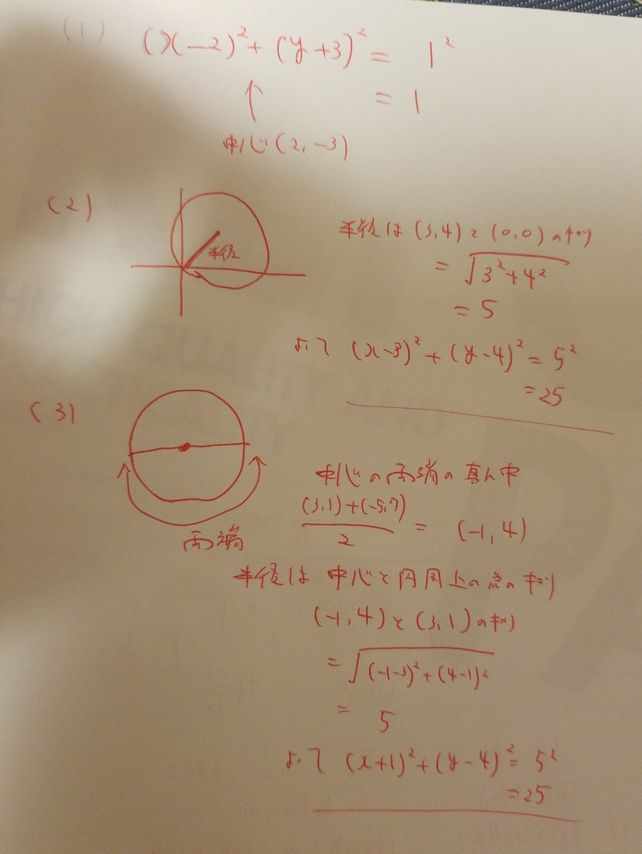 (1) (x-2)² + (y+3)² = 1²
= 1
中心(2,-3)
(2)
半径
半径は (3,4) と (0,0) のキョリ
= √3²+4²
= 5
よって (x-3)² + (y-4)² = 5²
=25
(3)
両端
中心の両端の真ん中
(3,1)+(-5,7)/2 = (-1,4)
半径は 中心と円周上の点のキョリ
(-1,4)と(3,1)のキョリ
= √(-1-3)²+(4-1)²
= 5
よって (x+1)²+(y-4)² = 5²
=25